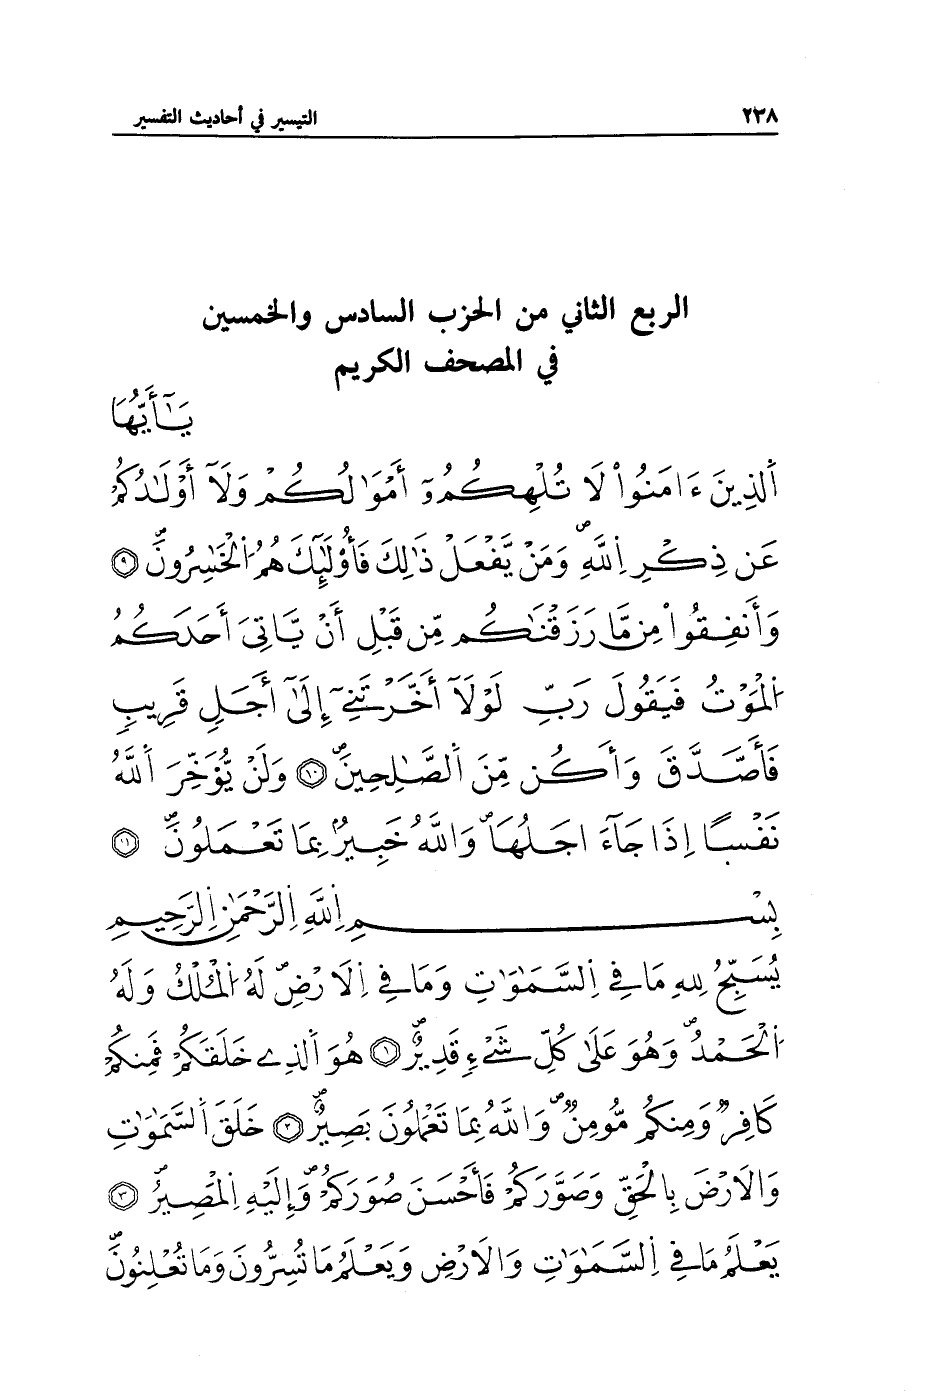 ٢٣٨ التيسير في أحاديث التفسير
الربع الثاني من الحزب السادس والخمسين
في المصحف الكريم
يَٰٓأَيُّهَا
اَ۬لذِينَ ءَامَنُواْ لَا تُلْهِكُمُۥٓ أَمْوَٰلُكُمْ وَلَآ أَوْلَٰدُكُمْ
عَن ذِكْرِ اِ۬للَّهِۖ وَمَنْ يَّفْعَلْ ذَٰلِكَ فَأُوْلَٰٓئِكَ هُمُ اُ۬لْخَٰسِرُونَۖ ٩
وَأَنفِقُواْ مِن مَّا رَزَقْنَٰكُم مِّن قَبْلِ أَنْ يَّاتِىَ أَحَدَكُمُ
اُ۬لْمَوْتُ فَيَقُولَ رَبِّ لَوْلَآ أَخَّرْتَنِےٓ إِلَىٰٓ أَجَلٖ قَرِيبٖ
فَأَصَّدَّقَ وَأَكُن مِّنَ اَ۬لصَّٰلِحِينَۖ ١٠ وَلَنْ يُّؤَخِّرَ اَ۬للَّهُ
نَفْساً اِذَا جَآءَ اجَلُهَاۖ وَاللَّهُ خَبِيرُۢ بِمَا تَعْمَلُونَۖ ١١
بِسْمِ اِ۬للَّهِ اِ۬لرَّحْمَٰنِ اِ۬لرَّحِيمِ
يُسَبِّحُ لِلهِ مَا فِے اِ۬لسَّمَٰوَٰتِ وَمَا فِے اِ۬لَارْضِۖ لَهُ اُ۬لْمُلْكُ وَلَهُ
اُ۬لْحَمْدُۖ وَهُوَ عَلَىٰ كُلِّ شَےْءٖ قَدِيرٌۖ ١ هُوَ اَ۬لذِے خَلَقَكُمْ فَمِنكُمْ
كَافِرٞ وَمِنكُم مُّومِنٞۖ وَاللَّهُ بِمَا تَعْمَلُونَ بَصِيرٌۖ ٢ خَلَقَ اَ۬لسَّمَٰوَٰتِ
وَالَارْضَ بِالْحَقِّ وَصَوَّرَكُمْ فَأَحْسَنَ صُوَرَكُمْۖ وَإِلَيْهِ اِ۬لْمَصِيرُۖ ٣
يَعْلَمُ مَا فِے اِ۬لسَّمَٰوَٰتِ وَالَارْضِ وَيَعْلَمُ مَا تُسِرُّونَ وَمَا تُعْلِنُونَۖ